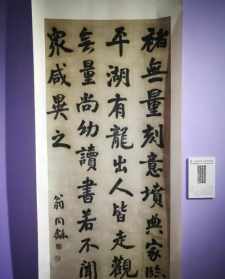 褚無量刻意墳典家臨
平湖有龍出人皆走觀
無量尚幼讀書若不聞
眾咸異之
翁同龢